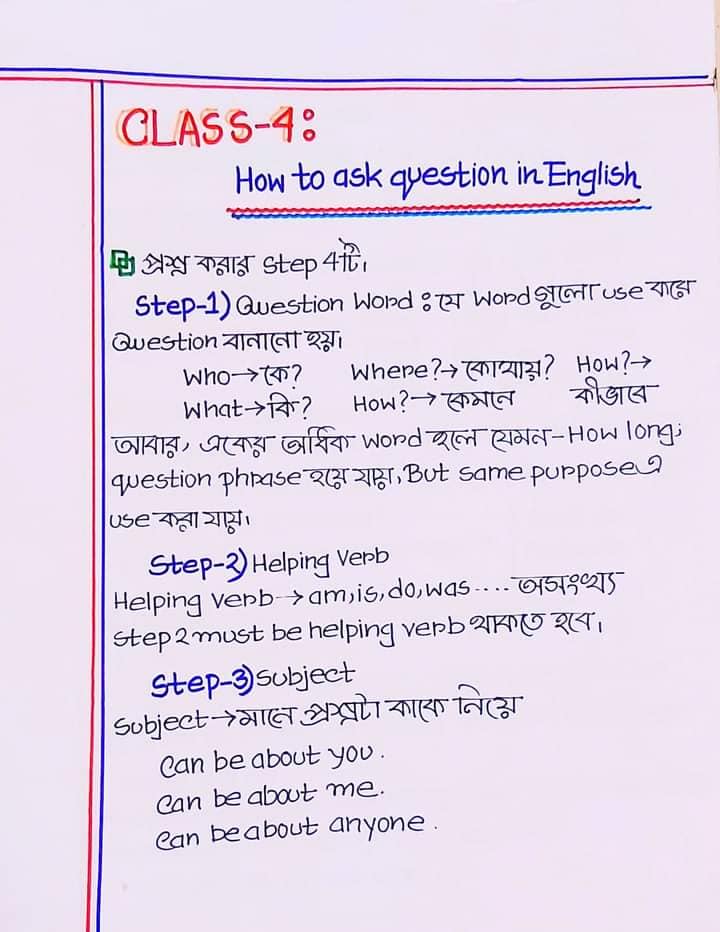 CLASS-4:
How to ask question in English
প্রশ্ন করার step 4টি।
Step-1) Question Word : যে word গুলো use করে
Question বানানো হয়।
Who→কে? Where?→কোথায়? How?→
What→কি? How?→ কেমনে কীভাবে
আবার, একের অধিক word হলে যেমন-How long;
question phrase হয়ে যায়, But same purpose এ
use করা যায়।
Step-2) Helping Verb
Helping verb→am,is,do,was.... অসংখ্য
step 2 must be helping verb থাকতে হবে।
Step-3) Subject
Subject→মানে প্রশ্নটা কাকে নিয়ে
Can be about you.
Can be about me.
Can be about anyone.